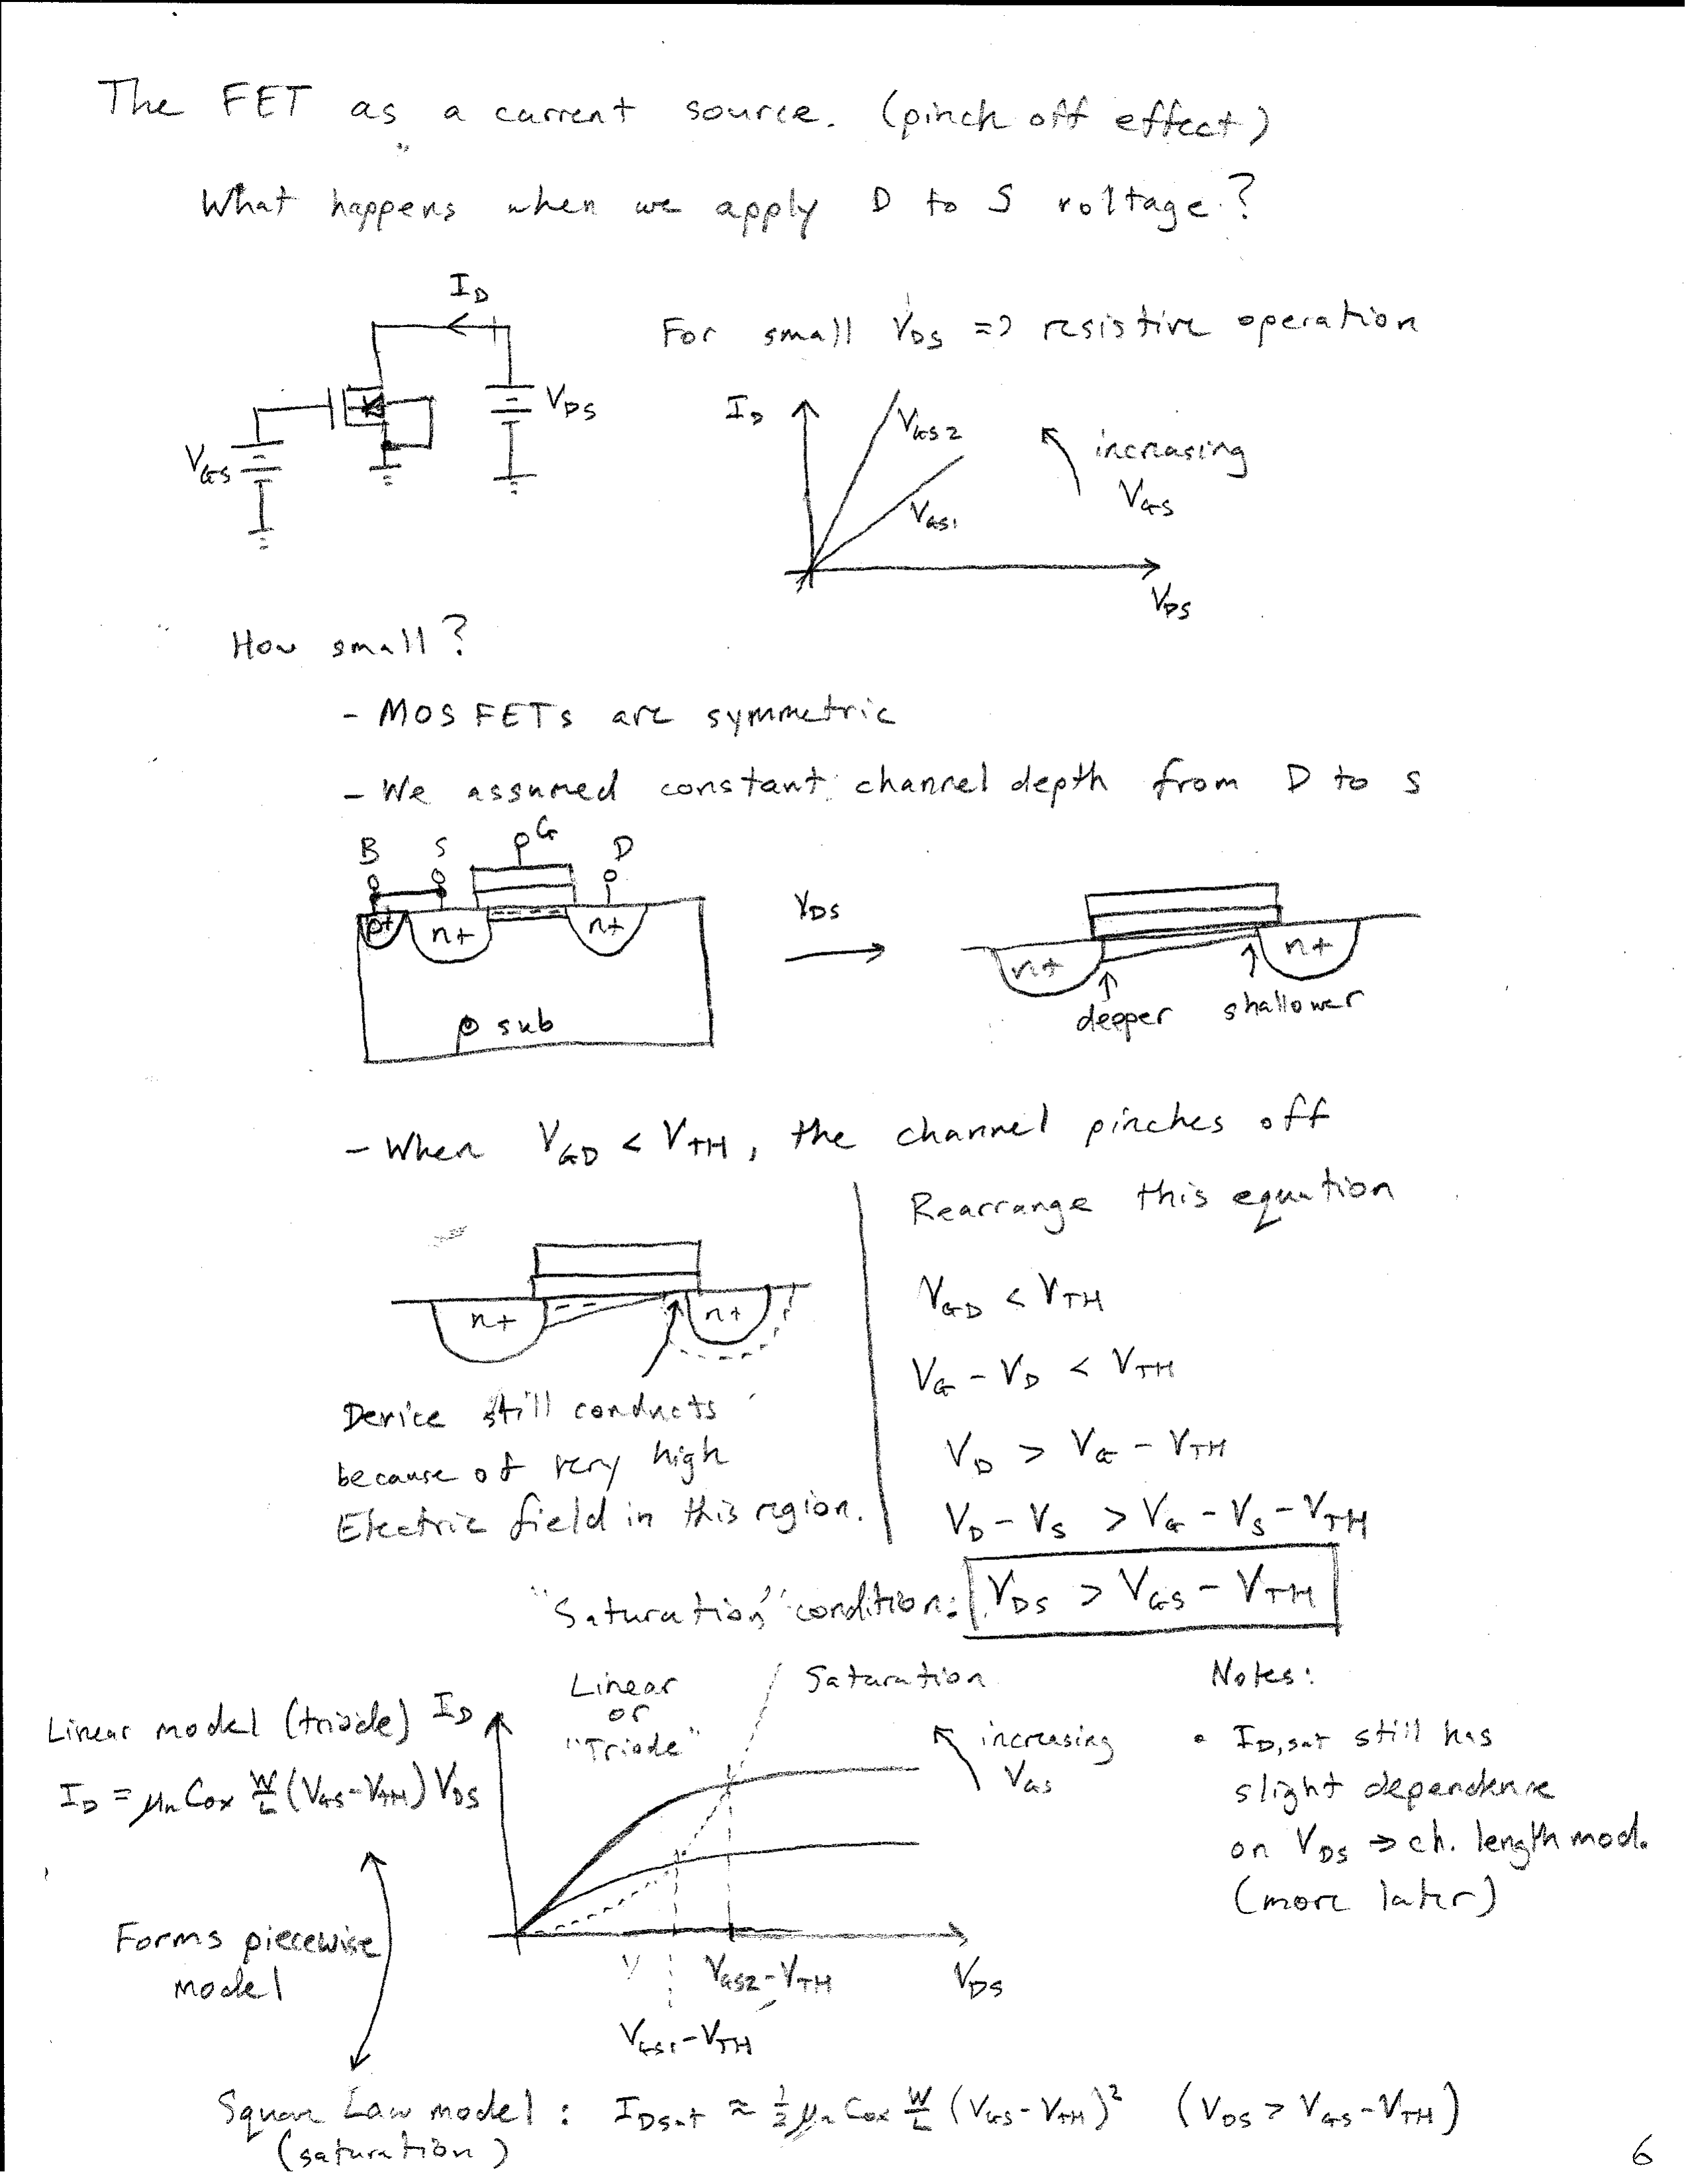 The FET as a current source. (pinch off effect)
What happens when we apply D to S voltage?
I_D
V_GS
V_DS
For small V_DS => resistive operation
I_D
V_GS2
V_GS1
increasing
V_GS
V_DS
How small?
- MOSFETs are symmetric
- We assumed constant channel depth from D to S
B S G D
p+ n+ n+
sub
V_DS
n+ n+
deeper shallower
- When V_GD < V_TH, the channel pinches off
n+ n+
Device still conducts
because of very high
Electric field in this region.
Rearrange this equation
V_GD < V_TH
V_G - V_D < V_TH
V_D > V_G - V_TH
V_D - V_S > V_G - V_S - V_TH
"Saturation" condition: V_DS > V_GS - V_TH
Linear model (triode)
I_D = μn Cox W/L (V_GS - V_TH) V_DS
Forms piecewise
model
I_D
Linear
or
"Triode"
Saturation
increasing
V_GS
V
V_GS2 - V_TH
V_DS
V_GS1 - V_TH
Notes:
• I_D,sat still has
slight dependence
on V_DS → ch. length mod.
(more later)
Square Law model: I_Dsat ≈ 1/2 μn Cox W/L (V_GS - V_TH)² (V_DS > V_GS - V_TH)
(saturation)
6